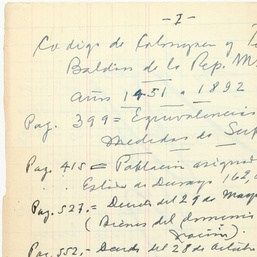 - I -
Codigo de Colonizacn y Te
Baldios de la Rep. M
Años 1451 a 1892
Pag. 399 = Equivalencias
Medidas de Sup
Pag. 415 = Poblacion asignad
" " Estado de Durango 162,
Pag. 527.= Decreto del 29 de Mayo
(Bienes del dominio
nación).
Pag. 552.- Decreto del 28 de Octubre